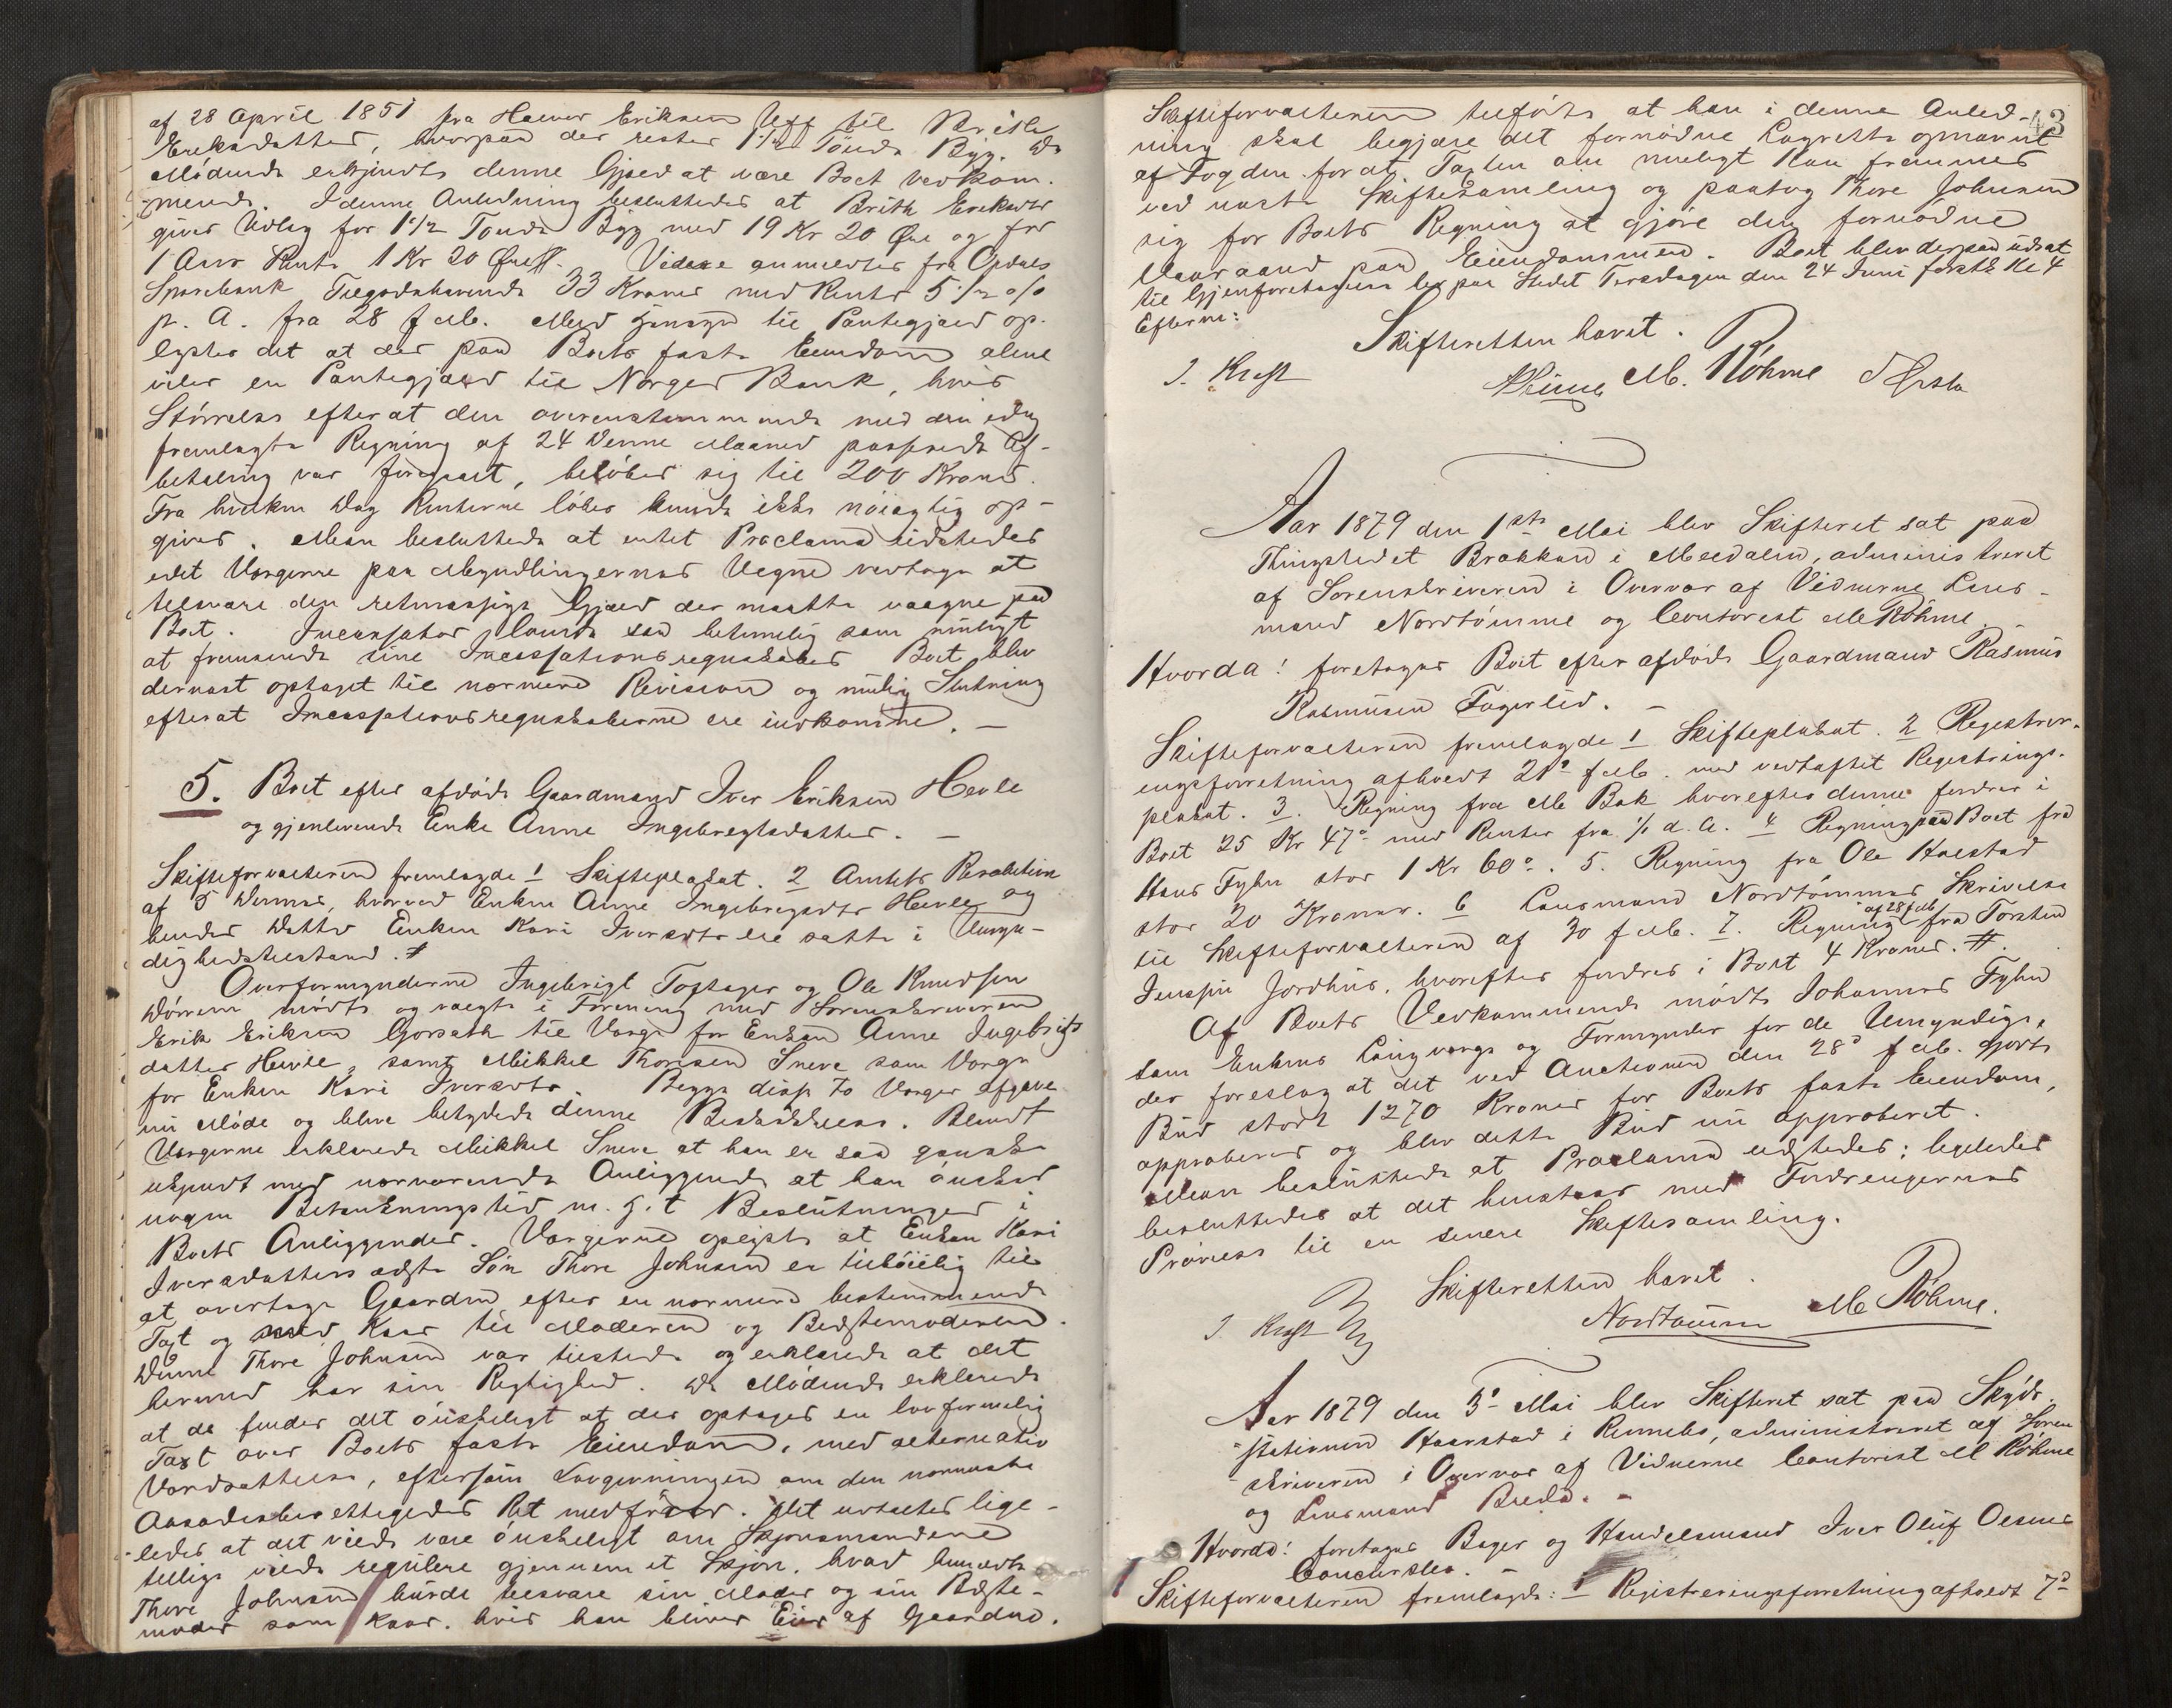 af 28 April 1851 fra Halvor Eriksen Uff til Brith
Eriksdatter, hvorpaa der rester 1 1/2 Tønde Byg. De
Mødende erkjendte denne Gjæld at være Boet vedkom-
mende. I denne Anledning besluttedes at Brith Eriksdtr
gives Udlæg for 1 1/2 Tønde Byg med 19 Kr 20 Øre og for
1 Aars Rente 1 Kr 20 Øre #. Videre anmeldtes fra Opdals
Sparebank Tilgodehavende 33 Kroner med Renter 5 1/2 %
p. A. fra 28 f. M. Med Hensyn til Pantegjæld op-
lystes det at der paa Boets faste Eiendom alene
hviler en Pantegjæld til Norges Bank, hvis
Størrelse efterat den overensstemmende med den idag
fremlagte Regning af 24 denne Maaned passerede Af-
betaling var foregaaet, beløber sig til 200 Kroner.
Fra hvilken Dag Renterne løber kunde ikke nøiagtig op-
gives. Man besluttede at intet Proclama udstedes
idet Værgerne paa Myndlingernes Vegne vedtage at
tilsvare den retmæssige Gjæld der maatte vaagne paa
Boet. Incassator lovede saa betimelig som muligt
at fremsende sine Incassationsregnskaber. Boet blev
dernæst optaget til nærmere Revision og mulig Slutning
efterat Incassationsregnskaberne ere indkomne. —
5. Boet efter afdøde Gaardmand Iver Eriksen Hevle
og gjenlevende Enke Anne Ingebrigtsdatter. —
Skifteforvalteren fremlagde 1 Skifteplakat. 2 Amtets Resolution
af 5 dennes, hvorved Enken Anne Ingebrigtsdtr Hevle og
hendes Datter Enken Kari Iversdtr ere satte i Umyn-
dighedstilstand. #
Overformynderne Ingebrigt Toftager og Ole Knudsen
Dørrem mødte og valgte i Forening med Sorenskriveren
Erik Eriksen Gorseth til Værge for Enken Anne Ingebrigts
datter Hevle, samt Mikkel Thoresen Sneve som Værge
for Enken Kari Iversdtr. Begge disse to Værger afgave
nu Møde og bleve betydede denne Beskikkelse. Blandt
Værgerne erklærede Mikkel Sneve at han er saa ganske
ukjendt med nærværende Anliggende at han ønsker
nogen Betænkningstid m. H. t. Beslutninger i
Boets Anliggender. Værgerne oplyste at Enken Kari
Iversdatters ældste Søn Thore Johnsen er tilbøielig til
at overtage Gaarden efter en nærmere bestemmende
Taxt og med Kaar til Moderen og Bedstemoderen.
Denne Thore Johnsen var tilstede og erklærede at det
hermed har sin Rigtighed. De Mødende erklærede
at de finder det ønskeligt at der optages en lovformelig
Taxt over Boets faste Eiendom, med alternativ
Værdsættelse, eftersom Lovgivningen om den nærmeste
Aasædesberettigedes Ret medfører. Det udtaltes lige-
ledes at det vilde være ønskeligt om Skjønsmændene
tillige vilde regulere gjennem et Skjøn, hvad bemeldte
Thore Johnsen burde tilsvare sin Moder og sin Bedste-
moder som Kaar, hvis han bliver Eier af Gaarden.
43
Skifteforvalteren tilførte at han i denne Anled-
ning skal begjære det fornødne Lagrette opnævnt
af Fogden for at Taxten om muligt kan fremmes
ved næste Skiftesamling og paatog Thore Johnsen
sig for Boets Regning at gjøre den fornødne
Udvaand paa Eiendommen. Boet blev derpaa udsat
til Gjenforetagelse her paa Stedet Tirsdagen den 24 Juniførstk Kl 4
Efterm:
Skifteretten hævet.
J. Kraft M. Röhme
Aar 1879 den 1ste Mai blev Skifteret sat paa
Thingstedet Brækken i Meldalen, administreret
af Sorenskriveren i Overvær af Vidnerne Lens-
mand Nordtømme og Contorist M Röhme.
Hvorda! foretages Boet efter afdøde Gaardmand Rasmus
Rasmusen Fagerlid. —
Skifteforvalteren fremlagde 1 Skifteplakat. 2 Registrer-
ingsforretning afholdt 21de f. M. med vedhæftet Registrerings-
plakat. 3. Regning fra M Bak hvorefter denne fordrer i
Boet 25 Kr 47 ø med Renter fra 1/1 d. A. 4 Regning paa Boet fra
Hans Fyhn stor 1 Kr 60 ø. 5. Regning fra Ole Halstad
stor 20 Kroner. 6 Lensmand Nordtømmes Skrivelse
til Skifteforvalteren af 30 f. M. 7. Regning af 28 f. M. fra Torsten
Jensen Jordhus, hvorefter fordres i Boet 4 Kroner. #.
Af Boets Vedkommende mødte Johannes Fyhn
som Enkens Laugværge og Formynder for de Umyndige,
der foreslog at det ved Auctionen den 28de f. M. gjorte
Bud stort 1270 Kroner for Boets faste Eiendom,
approberes og blev dette Bud nu approberet.
Man besluttede at Proclama udstedes; ligeledes
besluttedes at det henstaar med Fordringernes
Prøvelse til en senere Skiftesamling.
Skifteretten hævet.
J. Kraft Nordtømme M Röhme.
Aar 1879 den 3de Mai blev Skifteret sat paa Skyds-
stationen Haarstad i Rennebo, administreret af Soren
skriveren i Overvær af Vidnerne Contorist M Röhme
og Lensmand Breda. —
Hvorda! foretages Bager og Handelsmand Iver Oluf Oesens
Concursbo. —
Skifteforvalteren fremlagde: 1 Registreringsforretning afholdt 7de